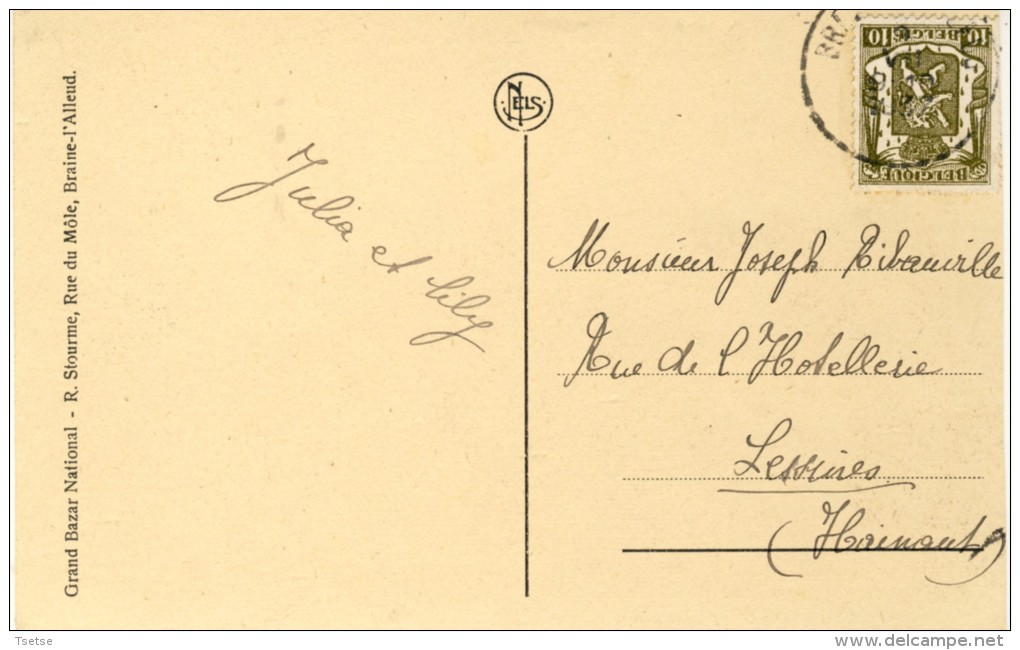 Grand Bazar National - R. Stourme, Rue du Môle, Braine-l'Alleud.
NELS
Julia et Lily
10 BELGIË 10
BELGIQUE
Monsieur Joseph Ribauville
Rue de l'Hotellerie
Lessines
(Hainaut)
Tsetse
delcampe.net